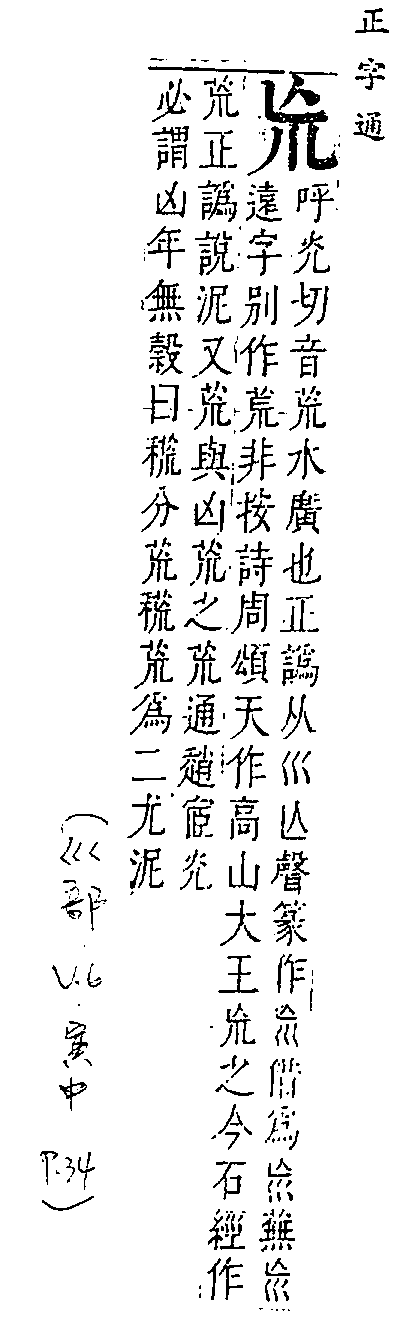 正字通
巟
呼炗切音荒水廣也正譌从巛亾聲篆作巟借爲巟蕪巟
遠字別作荒非按詩周頌天作高山大王巟之今石經作
荒正譌說泥又荒與凶荒之荒通趙宧炗
必謂凶年無穀曰䅣分荒䅣荒爲二尤泥
(巛部.V.6.寅中 P.34)